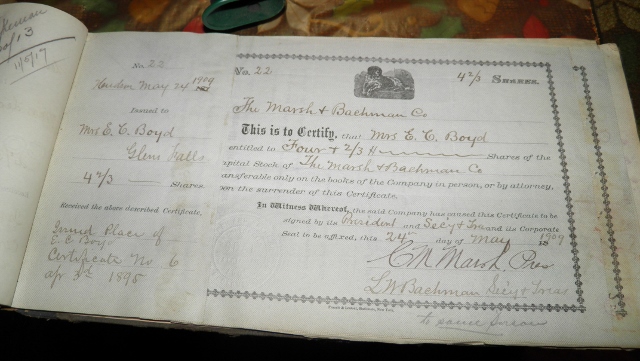 13
11/5/17
No. 22
Hudson May 24 1909
Issued to
Mrs E. C. Boyd
Glens Falls
4 2/3 Shares
Received the above described Certificate,
Issued Place of
E. C. Boyd
Certificate No 6
apr 3rd 1895
No. 22
4 2/3 Shares.
The Marsh & Bachman Co
This is to Certify, that Mrs E. C. Boyd
entitled to Four & 2/3 Shares of the
apital Stock of The Marsh & Bachman Co
ansferable only on the books of the Company in person, or by attorney,
on the surrender of this Certificate.
In Witness Whereof, the said Company has caused this Certificate to be
signed by its President and Secy & Treas and its Corporate
Seal to be affixed, this 24th day of May 1909
C M Marsh, Pres
L W Bachman Secy & Treas
to same